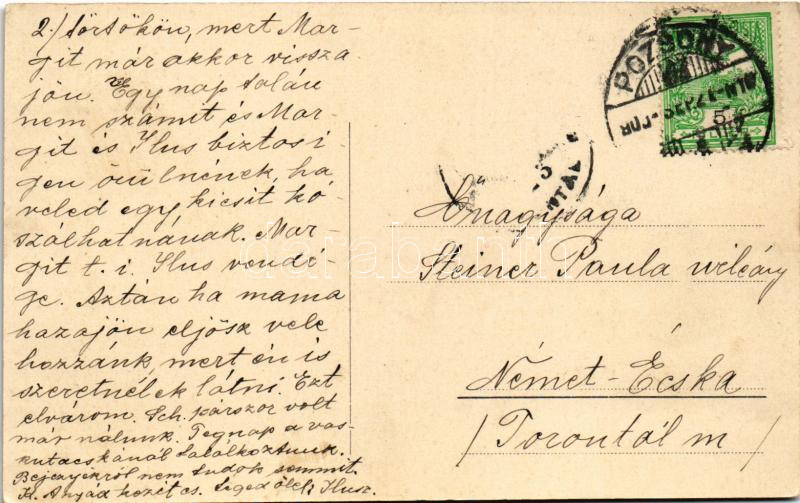 2./ törtökön, mert Mar-
git már akkor vissza
jön. Egy nap talán
nem számit és Mar-
git és Ilus biztos i-
gen örülnének, ha
veled egy kicsit kó-
szálhatnának. Mar-
git t. i. Ilus vendé-
ge. Aztán ha mama
hazajön eljösz vele
hozzánk, mert én is
szeretnélek látni. Ezt
elvárom. Sch. párszor volt
már nálunk. Tegnap a vas-
kutacskánál találkoztunk.
nem tudok semmit.
Anyád kezét cs. Ilusz.
POZSONY
5
Őnagysága
Steiner Paula
Német-Écska
/ Torontál m /
darabanth